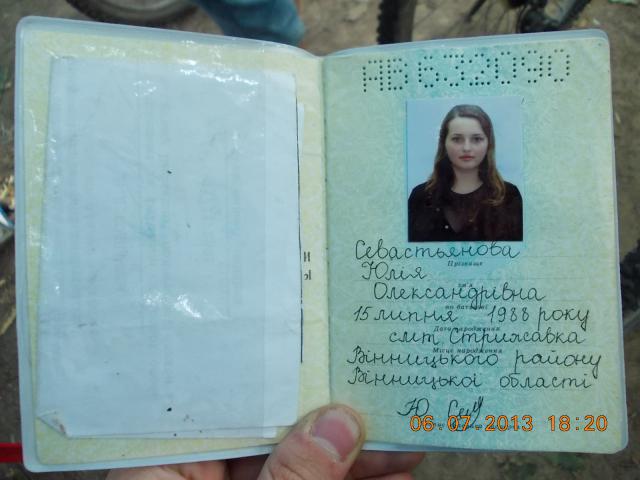 АВ 622090
Севастьянова
Прізвище
Юлія
Ім'я
Олександрівна
по батькові
15 липня 1988 року
Дата народження
смт Стрижавка
Місце народження
Вінницького району
Вінницької області
06/07/2013 18:20